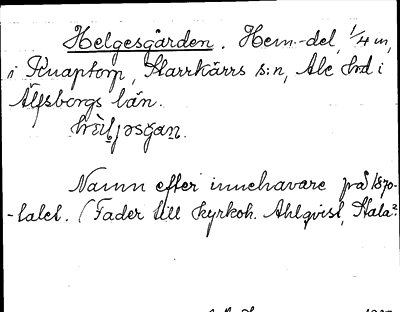 Helgesgården. Hem.-del, 1/4 m,
i Knaptorp, Starrkärrs s:n, Ale hd i
Älfsborgs län.
Namn efter innehavare på 1870-
-talet. (Fader till kyrkoh. Ahlqvist, Hala?